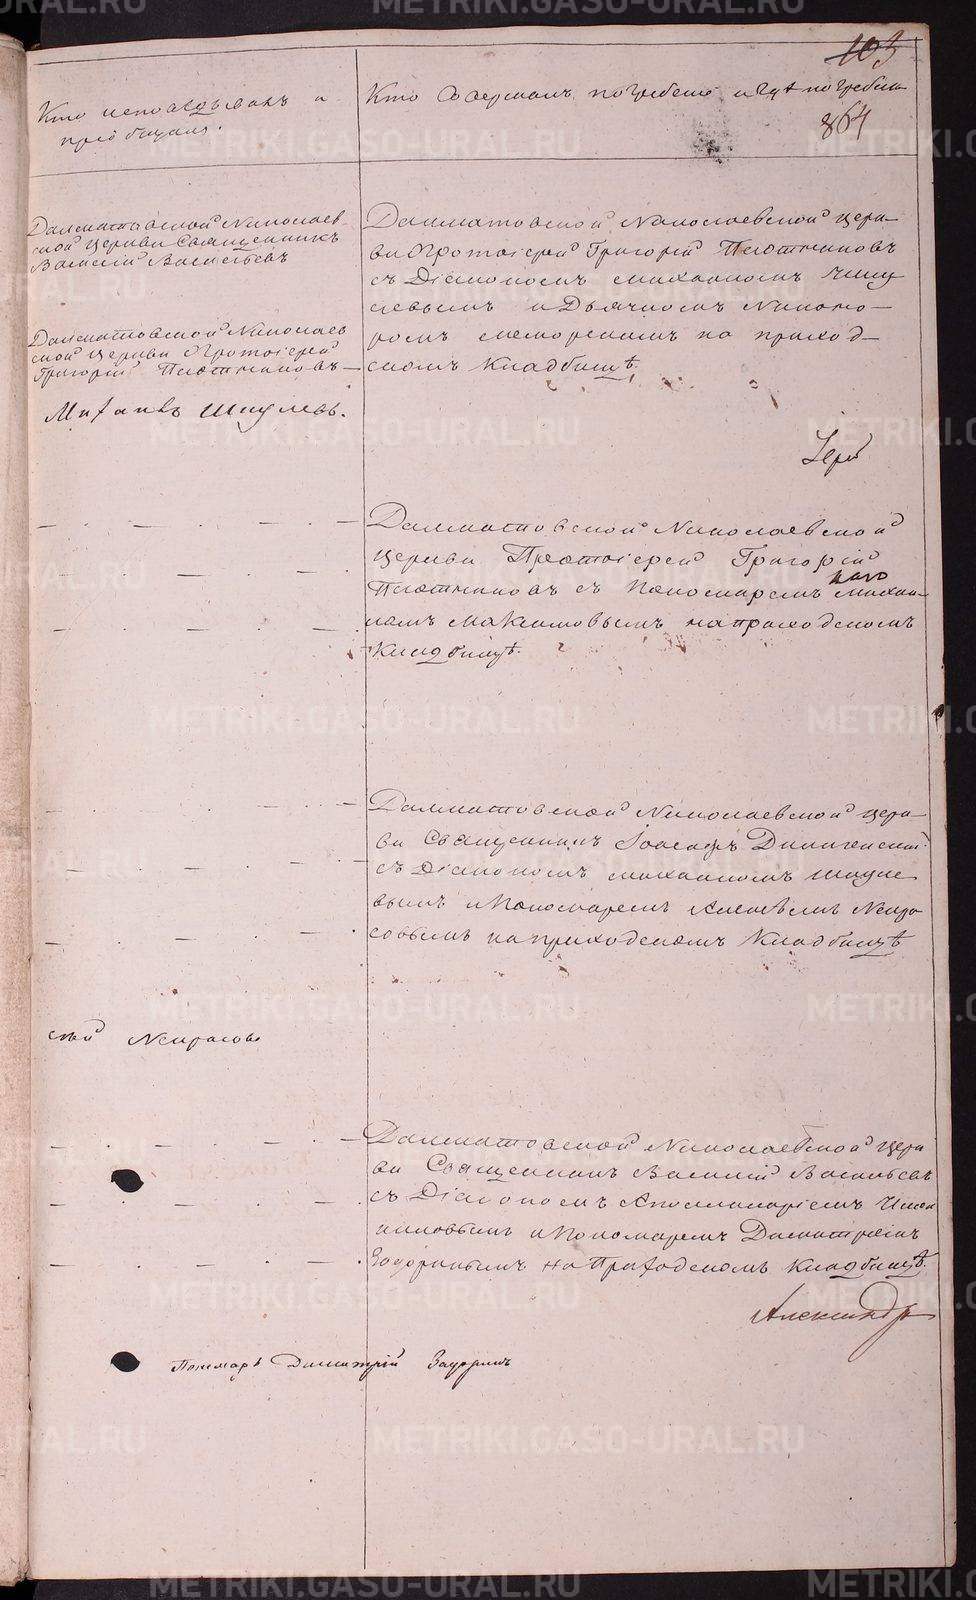 103
864
Кто исповѣдывалъ и
пріобщалъ.
Кто Совершалъ погребеніе и гдѣ погребены
Далматовской Николаев
ской Церкви Священникъ
Василій Васильевъ
Далматовской Николаев
ской Церкви Протоіерей
Григорій Плотниковъ
Михаилъ
Далматовской Николаевской Церк
ви Протоіерей Григорій Плотниковъ
съ Діакономъ Михаиломъ
и Дьячкомъ Никано
ромъ на приход
скомъ Кладбищѣ.
Іерей
Далматовской Николаевской
Церкви Протоіерей Григорій
Плотниковъ съ Пономаремъ Михаи
ломъ Максимовымъ на приходскомъ
Кладбищѣ.
Далматовской Николаевской Церк
ви Священникъ Іоасафъ
съ Діакономъ Михаиломъ
вымъ и Пономаремъ Алексѣемъ Некра
совымъ на приходскомъ Кладбищѣ
Некрасовъ
Далматовской Николаевской Церк
ви Священникъ Василій Васильевъ
съ Діакономъ Аполлинаріемъ
и Пономаремъ Димитріемъ
на Приходскомъ Кладбищѣ.
Александръ
Димитрій
METRIKI.GASO-URAL.RU